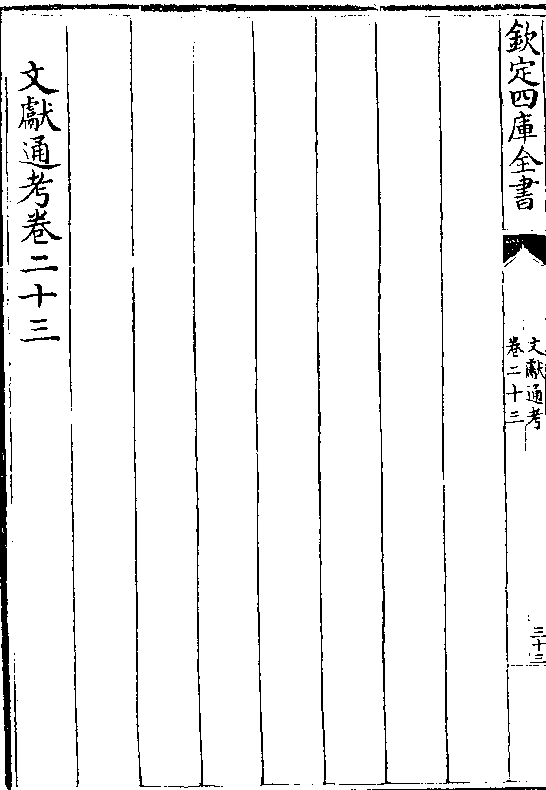 欽定四庫全書
文獻通考
卷二十三
三十三
文獻通考卷二十三